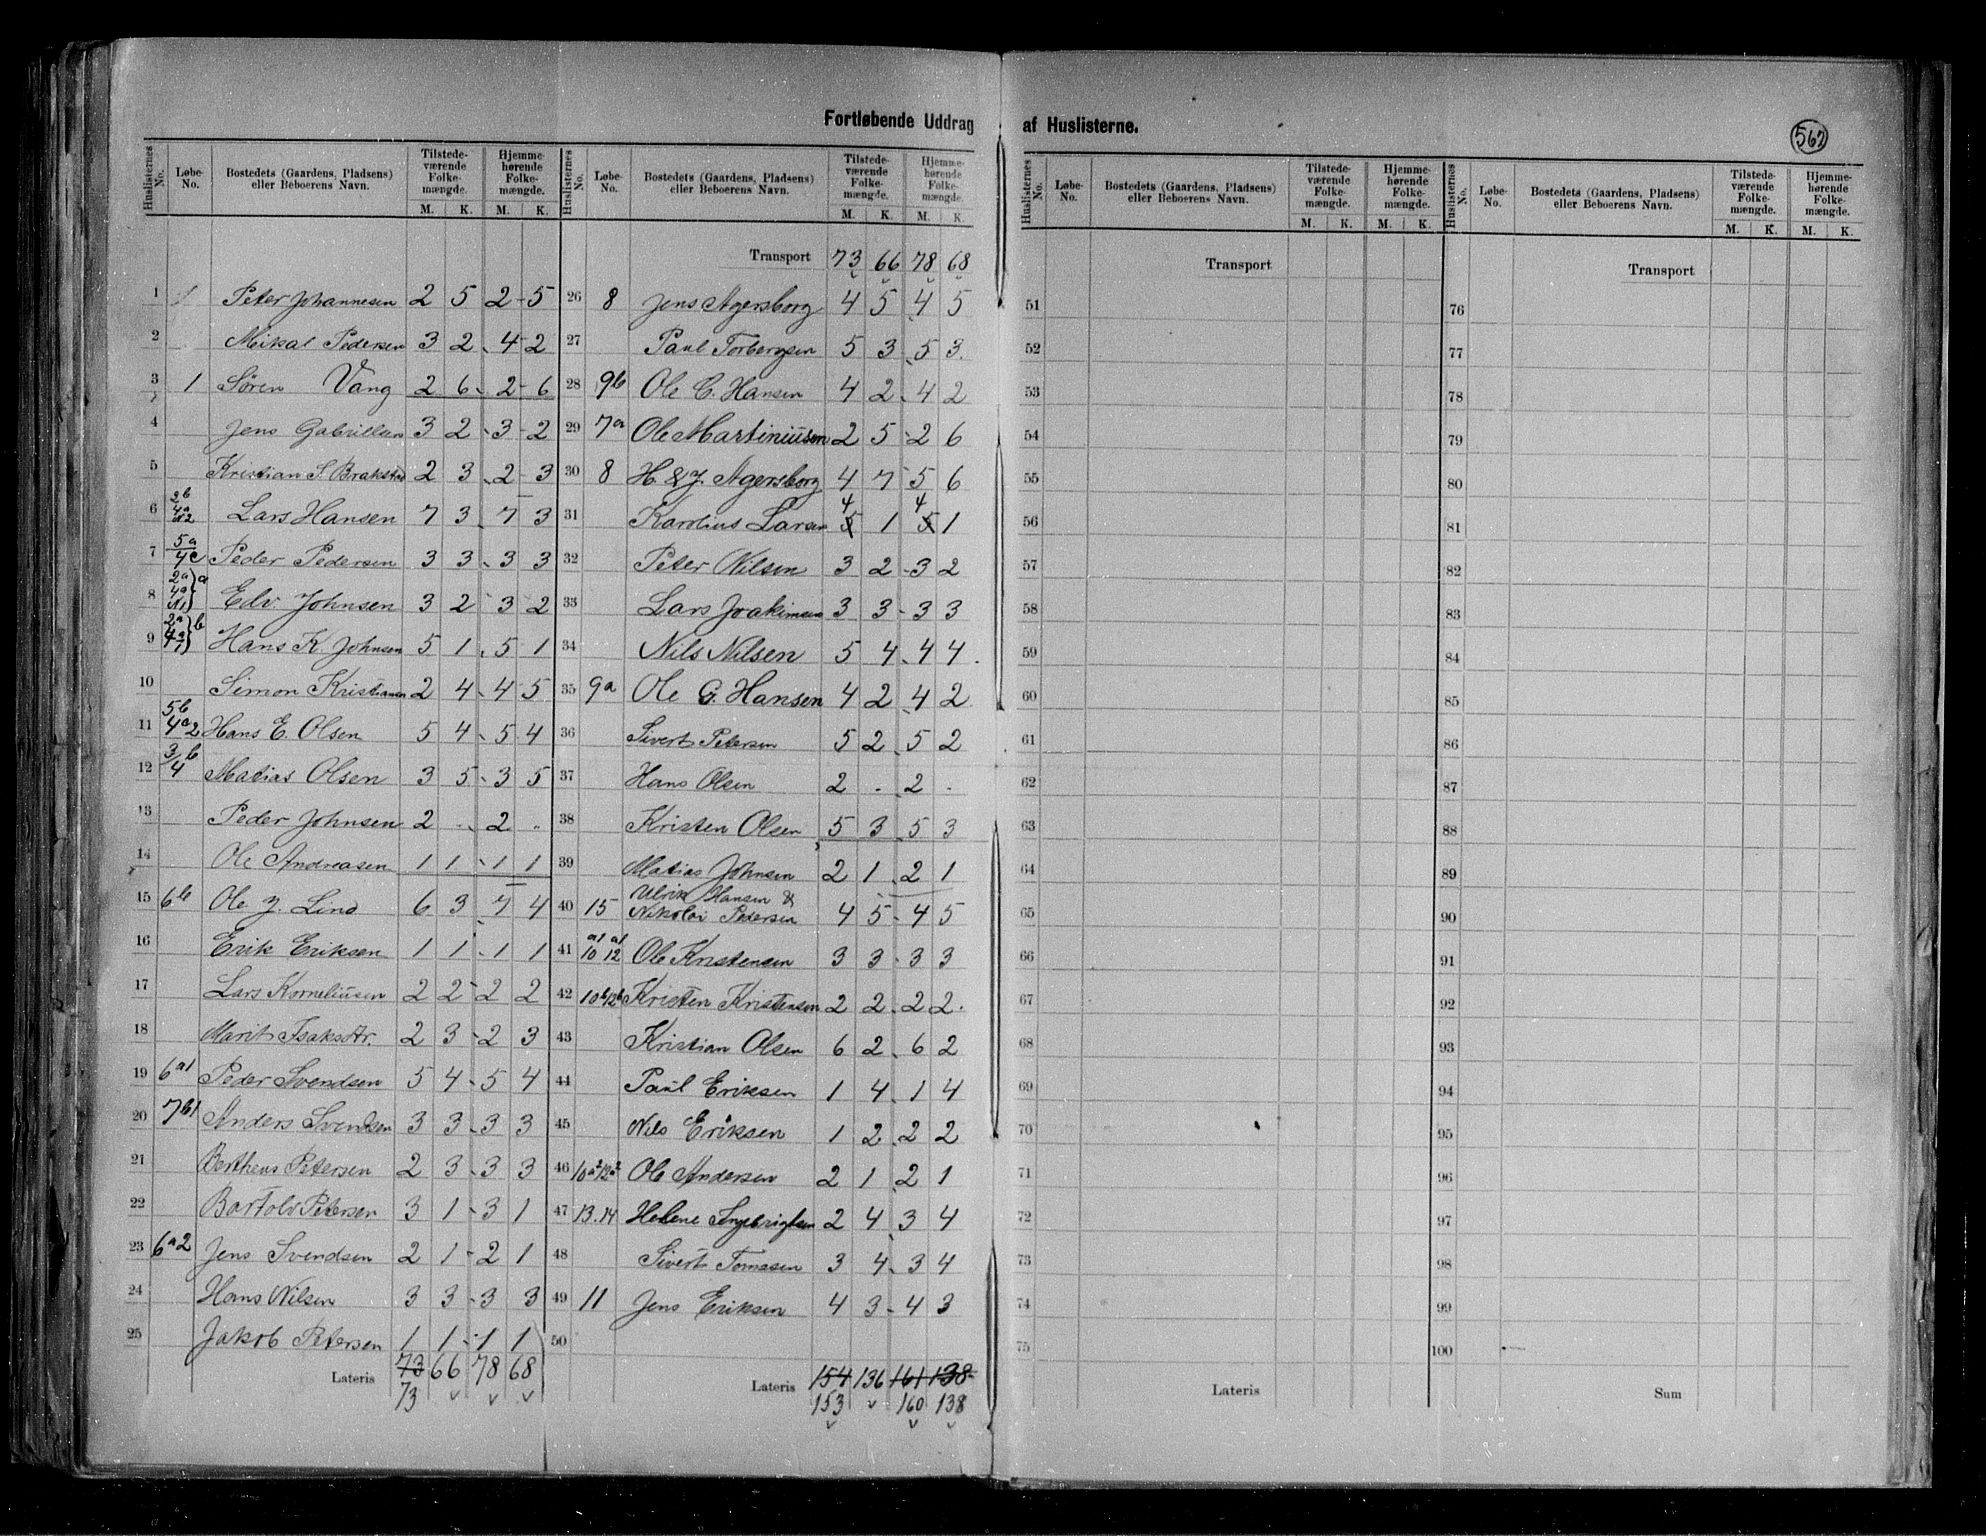 Fortløbende Uddrag af Huslisterne.
567
Huslisternes No. Løbe-No. Bostedets (Gaardens, Pladsens) eller Beboerens Navn. Tilstede-værende Folke-mængde. Hjemme-hørende Folke-mængde.
M. K. M. K.
1 1 Peter Johannesen 2 5 2 5
2 Mikal Pedersen 3 2 4 2
3 1 Søren Vang 2 6 2 6
4 Jens Gabrillsen 3 2 3 2
5 Kristian S. Brakstad 2 3 2 3
6 2b 4a 2 Lars Hansen 7 3 7 3
7 5a 4c Peder Pedersen 3 3 3 3
8 2a 4a 1 a Edv. Johnsen 3 2 3 2
9 2a 4a 1 b Hans K Johnsen 5 1 5 1
10 Simon Kristiansen 2 4 4 5
11 5b 4a2 Hans E. Olsen 5 4 5 4
12 3/4 b Matias Olsen 3 5 3 5
13 Peder Johnsen 2 . 2 .
14 Ole Andreasen 1 1 1 1
15 6b Ole J. Lind 6 3 7 4
16 Erik Eriksen 1 1 1 1
17 Lars Korneliusen 2 2 2 2
18 Marit Isaksdtr. 2 3 2 3
19 6a1 Peder Svendsen 5 4 5 4
20 7b1 Anders Svendsen 3 3 3 3
21 Berthens Petersen 2 3 3 3
22 Bartolv Petersen 3 1 3 1
23 6a2 Jens Svendsen 2 1 2 1
24 Hans Nilsen 3 3 3 3
25 Jakob Petersen 1 1 1 1
Lateris 73 66 78 68
73
Huslisternes No. Løbe-No. Bostedets (Gaardens, Pladsens) eller Beboerens Navn. Tilstede-værende Folke-mængde. Hjemme-hørende Folke-mængde.
M. K. M. K.
Transport 73 66 78 68
26 8 Jens Agersborg 4 5 4 5
27 Paul Torbergsen 5 3 5 3
28 9b Ole C. Hansen 4 2 4 2
29 7a Ole Martiniusen 2 5 2 6
30 8 H. & J. Agersborg 4 7 5 6
4 4
31 Karolius Larsen 5 1 5 1
32 Peter Nilsen 3 2 3 2
33 Lars Joakimsen 3 3 3 3
34 Nils Nilsen 5 4 4 4
35 9a Ole G. Hansen 4 2 4 2
36 Sivert Petersen 5 2 5 2
37 Hans Olsen 2 . 2 .
38 Kristen Olsen 5 3 5 3
39 Matias Johnsen 2 1 2 1
Ulrik Hansen &
40 15 Nikolai Pedersen 4 5 4 5
41 10a1 12a1 Ole Kristensen 3 3 3 3
42 10b 12b Kristen Kristensen 2 2 2 2
43 Kristian Olsen 6 2 6 2
44 Paul Eriksen 1 4 1 4
45 Nils Eriksen 1 2 2 2
46 10a2 12a2 Ole Andersen 2 1 2 1
47 13.14 Helene Ingebrigtsen 2 4 3 4
48 Sivert Tomasen 3 4 3 4
49 11 Jens Eriksen 4 3 4 3
50
Lateris 154 136 161 138
153 160 138
Huslisternes No. Løbe-No. Bostedets (Gaardens, Pladsens) eller Beboerens Navn. Tilstede-værende Folke-mængde. Hjemme-hørende Folke-mængde.
M. K. M. K.
Transport
51
52
53
54
55
56
57
58
59
60
61
62
63
64
65
66
67
68
69
70
71
72
73
74
75
Lateris
Huslisternes No. Løbe-No. Bostedets (Gaardens, Pladsens) eller Beboerens Navn. Tilstede-værende Folke-mængde. Hjemme-hørende Folke-mængde.
M. K. M. K.
Transport
76
77
78
79
80
81
82
83
84
85
86
87
88
89
90
91
92
93
94
95
96
97
98
99
100
Sum